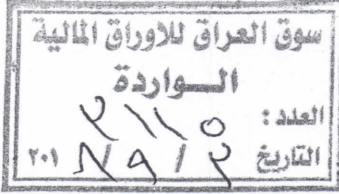 سوق العراق للاوراق المالية
الـــواردة
العدد : ٣١١٥
التاريخ ٣ / ٩ / ٢٠١٨